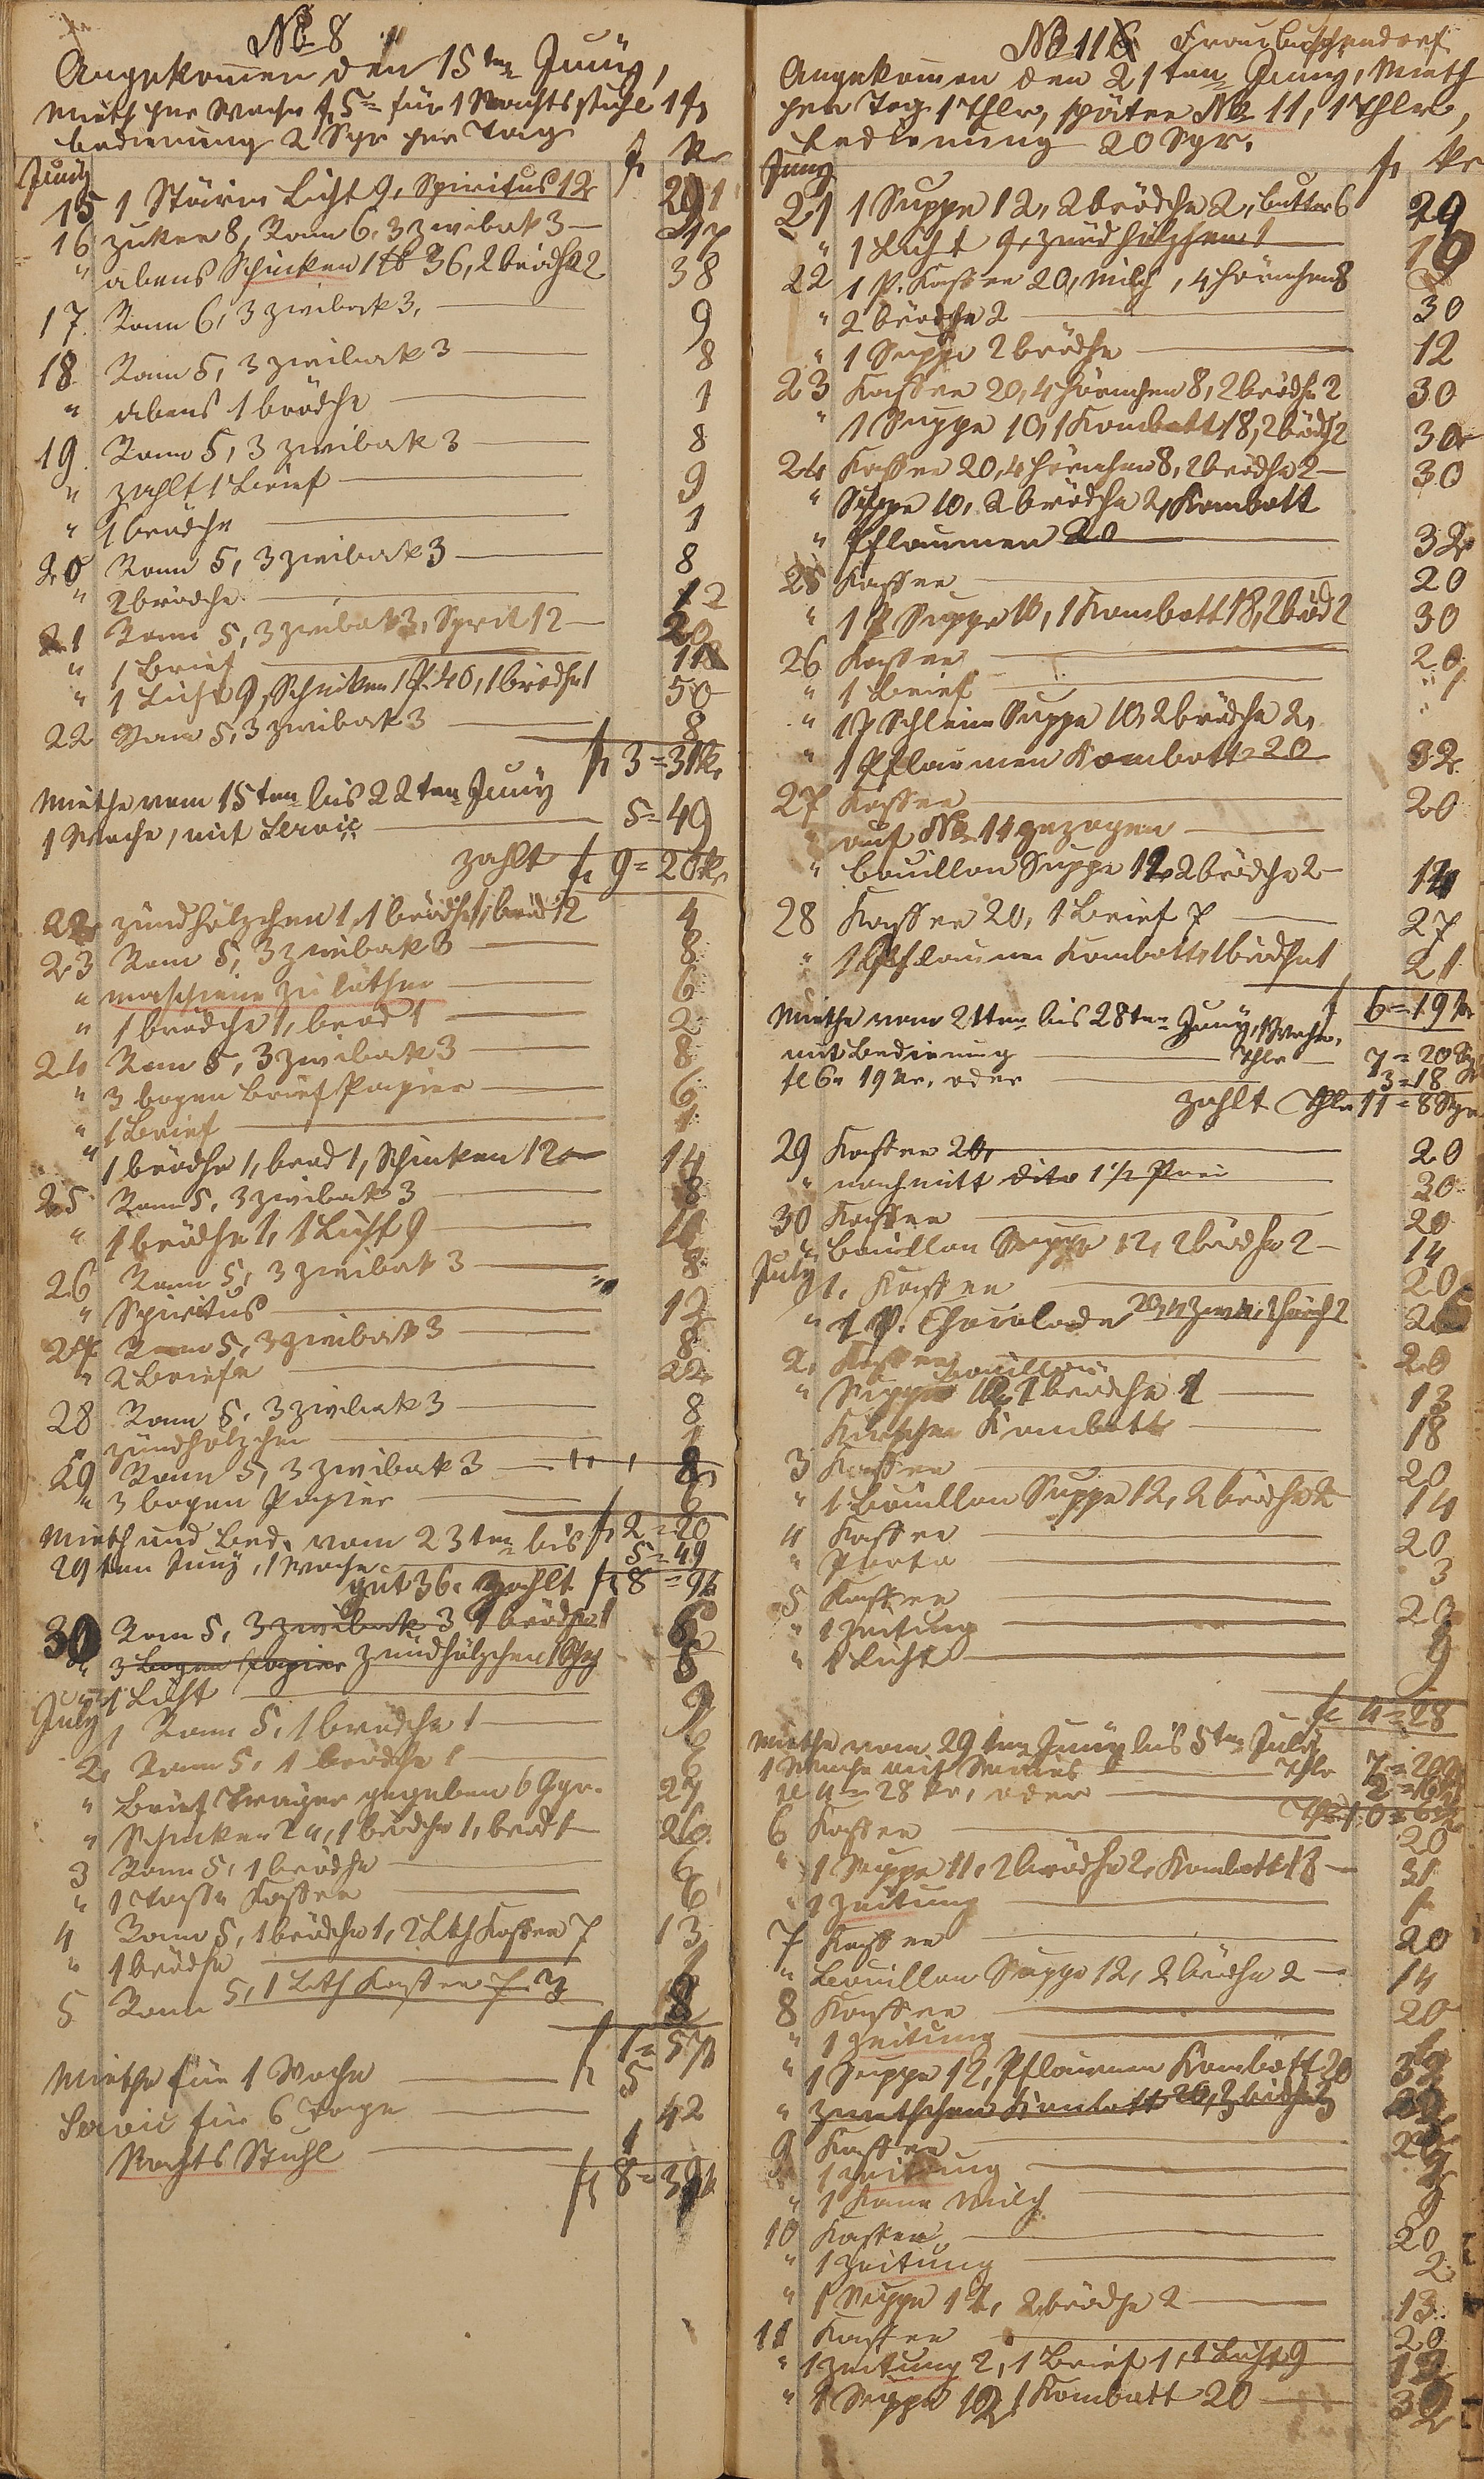 No 8
Angekomen den 15ten Juny,
Mieth per Woche f 5= für 1 Nachtsstuhl 1 f
bedienung 2 Sgr per Tag
Juny f kr
15 1 Stüirin Licht 9, Spiritus 12 21
16 Zuker 8, Ram 6, 3 zwibak 3 — 17
" abens Schinken 1 ℔ 36, 2 brödche 2 38
17. Ram 6, 3 zwibak 3, 9
18 Ram 5, 3 zwibak 3 8
" abens 1 brödche 1
19. Ram 5, 3 zwibak 3 8
" zahlt 1 Brief 9
" 1 brödche 1
20 Ram 5, 3 zwibak 3 8
" 2 brödche 2
21 Ram 5, 3 zwibak 3, Sprit 12 20
" 1 Brief 11
" 1 Licht 9, Schinken 1 P. 40, 1 brödche 1 50
22 Ram 5, 3 zwibak 3 8
f 3 = 31 kr
Miethe vom 15ten bis 22ten Juny
1 Woche, mit Servic 5 = 49
zahlt f 9 = 20 kr
22 zündhölzchen 1, 1 brödche 1, brod 2 4
23 Ram 5, 3 zwibak 3 8
" maschiene zu löthen 6
" 1 brödche 1, brod 1 2
24 Ram 5, 3 zwibak 3 8
" 3 bogen Brief Papier 6
" 1 Brief 1
" 1 brödche 1, brod 1, Schinken 12 14
25 Ram 5, 3 zwibak 3 8
" 1 brödche 1, 1 Licht 9 10
26 Ram 5, 3 zwibak 3 8
" Spiritus 12
27 Ram 5, 3 zwibak 3 8
" 2 Briefe 22
28 Ram 5, 3 zwibak 3 8
zündhölzchen 1
29 Ram 5, 3 zwibak 3 8
" 3 bogen Papier 6
f 2 = 20
Mieth und Bed. vom 23ten bis 5 = 49
29ten Juny, 1 Woche
gut 36. zahlt f 8 = 9 k
30 Ram 5, 3 zwibak 3 1 brödche 1 6
" 3 bogen Papier zündhölzchen 8
" 1 Licht 9
July 1 Ram 5, 1 brödche 1 6
2 Ram 5, 1 brödche 1 6
" Brief Träger gegeben 6 Ggr. 27
" Schinken 24, 1 brödche 1, brod 1 26
3 Ram 5, 1 brödche 6
" 1 Tasse Kaffee 6
4 Ram 5, 1 brödche 1, 2 Lth Kaffee 7 13
" 1 brödche 1
5 Ram 5, 1 Lth Kaffee 3 8
f 1 = 57
Miethe für 1 Woche 5
Servic für 6 Tage 42
Nachts Stuhl 1
f 8 = 39 k
No 116 Frau Buschendorf
Angekomen den 21ten Juny, Mieth
per Tag 1 Thlr, später No 11, 1 Thlr,
bedienung 20 Sgr.
Juny f kr
21 1 Suppe 12, 2 brödche 2, butter 6 20
" 1 Licht 9, zündhölzchen 1 10
22 1 P. Kaffee 20, Milch, 4 hörnchen 8
" 2 brödche 2 30
" 1 Suppe 2 brödche 12
23 Kaffee 20, 4 hörnchen 8, 2 brödche 2 30
" 1 Suppe 10, 1 Kombott 18, 2 bröd 2 30
24 Kaffee 20, 4 hörnchen 8, 2 brödche 2 — 30
" Suppe 10, 2 brödche 2, Kombott
" Pflaumen 20 32
25 Kaffee 20
" 1 P Suppe 10, 1 Kombott 18, 2 bröd 2 30
26 Kaffee 20
" 1 Brief 1
" 1 P Schleim Suppe 10, 2 brödche 2,
" 1 Pflaumen Kombott 20 32
27 Kaffee 20
" auf No 11 gezogen
" Bouillon Suppe 12, 2 brödche 2 — 14
28 Kaffee 20, 1 Brief 7 27
" 1 Pflaumen Kombott, 1 brödche 1 21
f 6 = 19 kr
Miethe vom 21ten bis 28ten Juny, 1 Woche,
mit Bedienung Thlr 7 = 20 Sg
fl 6 = 19 kr. oder 3 = 18
zahlt Thlr 11 = 8 Sgr
29 Kaffee 20, 20
" nachmitt dito 1 1/2 Porz 30
30 Kaffee 20
" Bouillon Suppe 12, 2 brödche 2 — 14
July 1. Kaffee 20
" 1 P. Chocolade 20, 4 zw 4, 2 hörch 2
2. Kaffee 20
" Suppe Bouillon 12, 1 brödche 1 13
Kirschen Kombott 18
3 Kaffee 20
" 1 Bouillon Suppe 12, 2 brödche 2 14
4 Kaffee 20
" Porto 3
5 Kaffee 20
" 1 Zeitung
" 1 Licht 9
f 4 = 28
Miethe vom 29ten Juny bis 5ten July
1 Woche mit Servies Thlr 7 = 20
fl 4 = 28 kr, oder
6 Kaffee 20
" 1 Suppe 11, 2 brödche 2, Kombott 18 — 31
" 1 Zeitung 1
7 Kaffee 20
" Bouillon Suppe 12, 2 brödche 2 — 14
8 Kaffee 20
" 1 Zeitung
" 1 Suppe 12, Pflaumen Kombott 20 32
" Zwetschen Kombott 20, 2 brödche 2
9 Kaffee 20
" 1 Zeitung
" 1 Kane Milch
10 Kaffee 20
" 1 Zeitung 2
" 1 Suppe 12, 2 brödche 2 13
11 Kaffee 20
" 1 Zeitung 2, 1 Brief 1, 1 Licht 9 12
" 1 Suppe 12, 1 Kombott 20 32